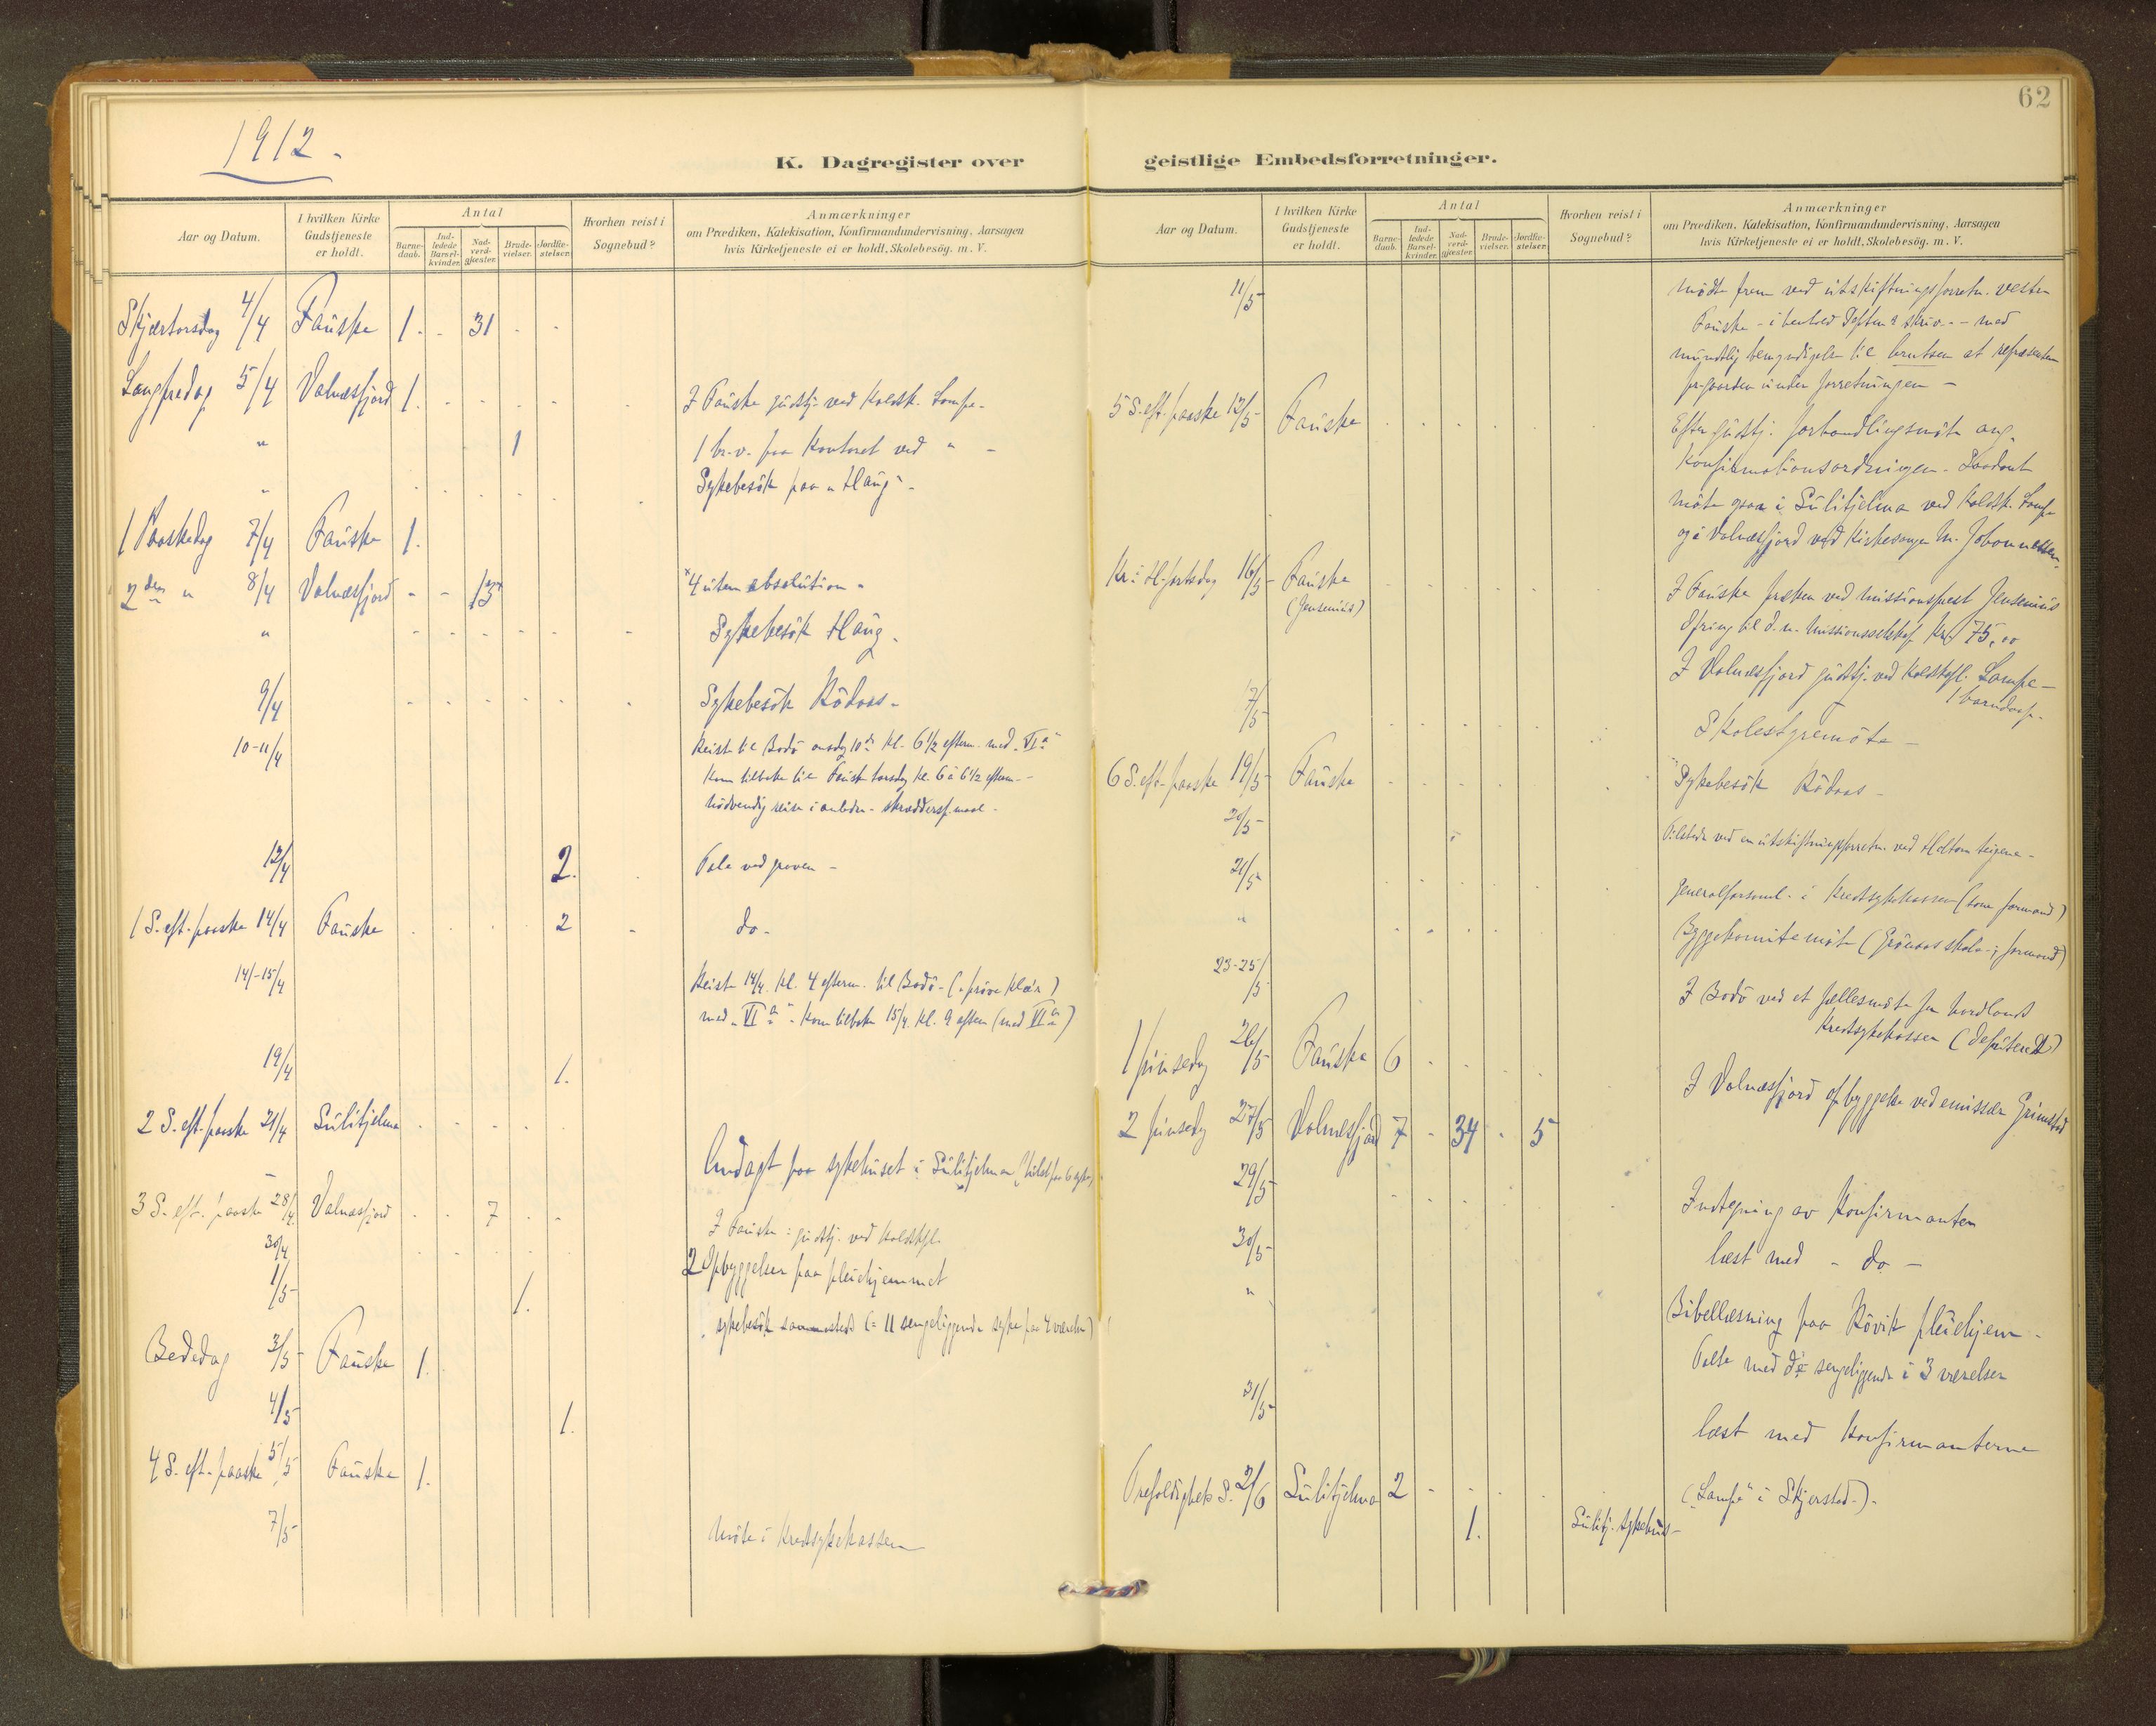 62
1912.
K. Dagregister over geistlige Embedsforretninger.
Aar og Datum.
I hvilken Kirke Gudstjeneste er holdt.
Antal
Barne-daab.
Ind-ledede Barsel-kvinder.
Nad-verd-gjæster.
Brude-vielser.
Jordfæ-stelser.
Hvorhen reist i Sognebud?
Anmærkninger
om Prædiken, Katekisation, Konfirmandundervisning, Aarsagen
hvis Kirketjeneste ei er holdt, Skolebesög. m. V.
Skjærtorsdag 4/4 Fauske 1. - 31 - -
Langfredag 5/4 Valnæsfjord 1. - - - - - I Fauske gudstj. ved Kaldsk. Lampe.
" 1 1 br.v. fra Kontoret ved " -
" - - - - - - Sykebesök paa "Haug".
1 Paaskedag 7/4 Fauske 1.
2den " 8/4 Valnæsfjord - - 13x x4 uten absolution.
" - - - - - - Sykebesök Haug.
9/4 - - - - - - Sykebesök Rödaas.
10-11/4 Reist til Bodö onsdag 10de kl. 6 1/2 efterm. med "VIa"
kom tilbake til Fauske torsdag kl. 6 à 6 1/2 efterm. -
Nödvendig reise i anledn. skræddersp.maal.
12/4 2. Tale ved graven -
1 S. eft. paaske 14/4 Fauske - - - - 2 - do -
14/-15/4 Reist 14/4 kl. 4 efterm. til Bodö - ("pröve klær)
med "VIa". Kom tilbake 15/4 kl. 9 aften (med VIa)
19/4 1.
2 S. eft. paaske 21/4 Sulitjelma - - - - -
- Andagt paa sykehuset i Sulitjelma
3 S. eft. paaske 28/4 Valnæsfjord - - 7 - - I Fauske: gudstj. ved Kaldskpl.
30/4 - - - - - 2 Opbyggelser paa pleiehjemmet
1/5 1. sykebesök sammesteds (= 11 sengeliggende syke paa 4 værelser)
Bededag 3/5 Fauske 1.
4/5 1.
4 S. eft. paaske 5/5 Fauske 1.
7/5 Möte i Kredssykekassen
Aar og Datum.
I hvilken Kirke Gudstjeneste er holdt.
Antal
Barne-daab.
Ind-ledede Barsel-kvinder.
Nad-verd-gjæster.
Brude-vielser.
Jordfæ-stelser.
Hvorhen reist i Sognebud?
Anmærkninger
om Prædiken, Katekisation, Konfirmandundervisning, Aarsagen
hvis Kirketjeneste ei er holdt, Skolebesög. m. V.
11/5 Mödt frem ved utskiftningsforretn. vestre
Fauske - i henhold - med
mundtlig bemyndigelse til at repræsentere
pr.gaarden under forretningen -
5 S. eft. paaske 12/5 Fauske - - - - - - Efter gudstj. forhandlingsmöte ang.
Konfirmationsordningen.
möte ogsaa i Sulitjelma ved Kaldsk. Lampe
og i Valnæsfjord ved Kirkesanger M. Johannessen.
Kr. H.fartsdag 16/5 Fauske (Jensenius) - - - - - I Fauske præken ved missionsprest Jensenius
Ofring til d. n. Missionsselskap Kr. 75,00
I Valnæsfjord gudstj. ved Kaldskpl. Lampe -
1 barnedaap.
17/5 - - - - - Skolestyremöte -
6 S. eft. paaske 19/5 Fauske - - - - - Sykebesök Rödaas -
20/5 Tilstede ved en utskiftningsforretn. ved
21/5 - - - - - Generalforsaml. i Kredssykekassen (som formand)
" - - - - Byggekomitemöte (Grönaas skole -; formand)
23-25/5 I Bodö ved et fællesmöte for Nordlands
Kredssykekasser (deputeret)
1 pinsedag 26/5 Fauske 6 - - - - I Valnæsfjord opbyggelse ved emissær Grimstad
2 pinsedag 27/5 Valnæsfjord 7 - 34 - 5
29/5 - - - - Indtegning av Konfirmanter
30/5 læst med - do -
" Bibellæsning paa Rövik pleiehjem.
Talte med de sengeliggende i 3 værelser
31/5 læst med Konfirmanterne
Trefoldigheds S. 2/6 Sulitjelma 2 - - - - ("Lampe" i Skjerstad -).
1. Sulitj. sykehus -